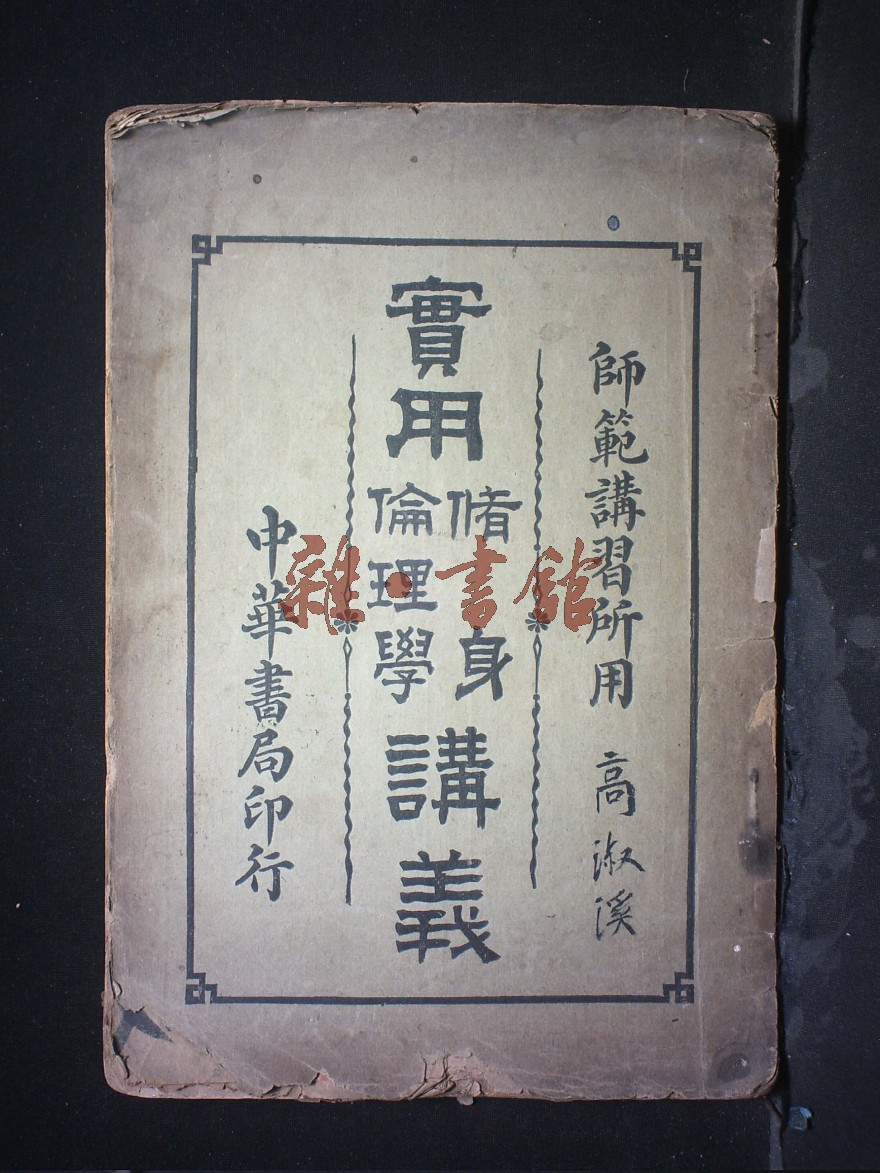 師範講習所用 高淑溪
實用脩身倫理學講義
中華書局印行
雜·書館